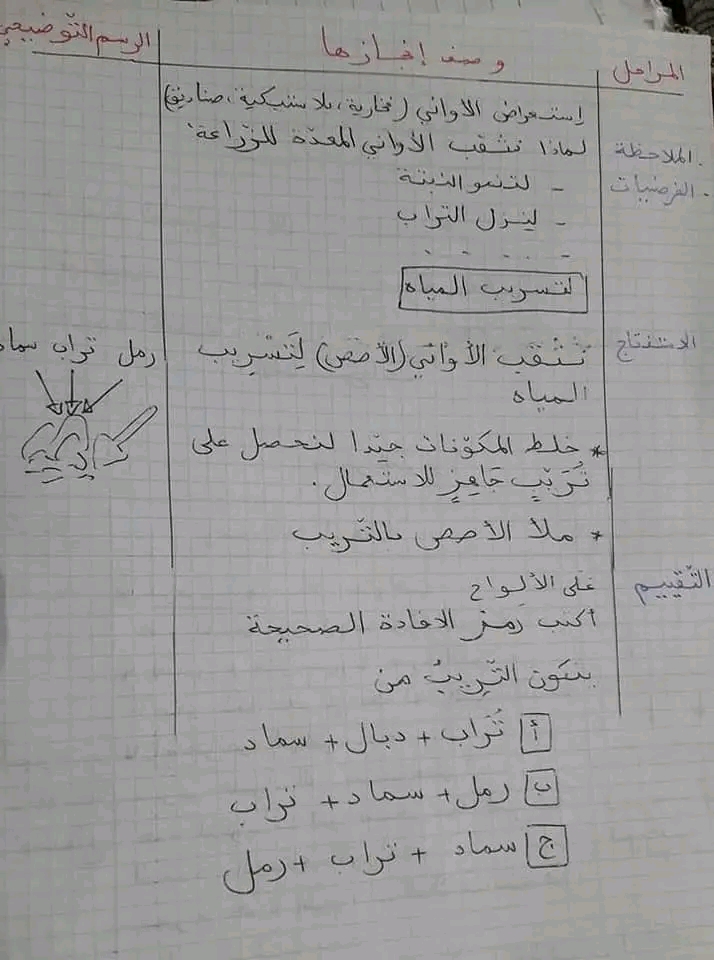 المراحل
وصف إنجازها
الرسم التّوضيحي
. الملاحظة
. الفرضيات
إستعراض الأواني (فخارية، بلاستيكية، صناديق)
لماذا نثقب الأواني المعدّة للزّراعة
- لتنمو النبتة
- لينزل التراب
- - - - -
لتسريب المياه
الاستنتاج
نثقب الأواني (الأصص) لِتَسْرِيب
المياه
* خلط المكوّنات جيّدا لنحصل على
تُرَيْبٍ جَاهِزٍ للاستعمال.
* ملأ الأصص بالتّريب
رمل تراب سماد
التّقييم
على الألواح
أكتب رمز الافادة الصحيحة
يتكون التّريبُ من
أ تُراب + دبال + سماد
ب رمل + سماد + تراب
ج سماد + تراب + رمل